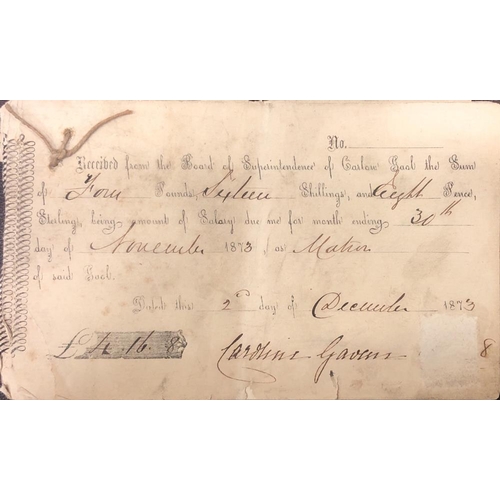 No.
Received from the Board of Superintendence of Carlow Gaol the Sum
of Four Pounds, Sixteen Shillings, and Eight Pence,
Sterling, being amount of Salary due me for month ending 30th
day of November 1873, as Matron
of said Gaol.
Dated this 2nd day of December 1873
£4.16.8 Caroline Gavin
8